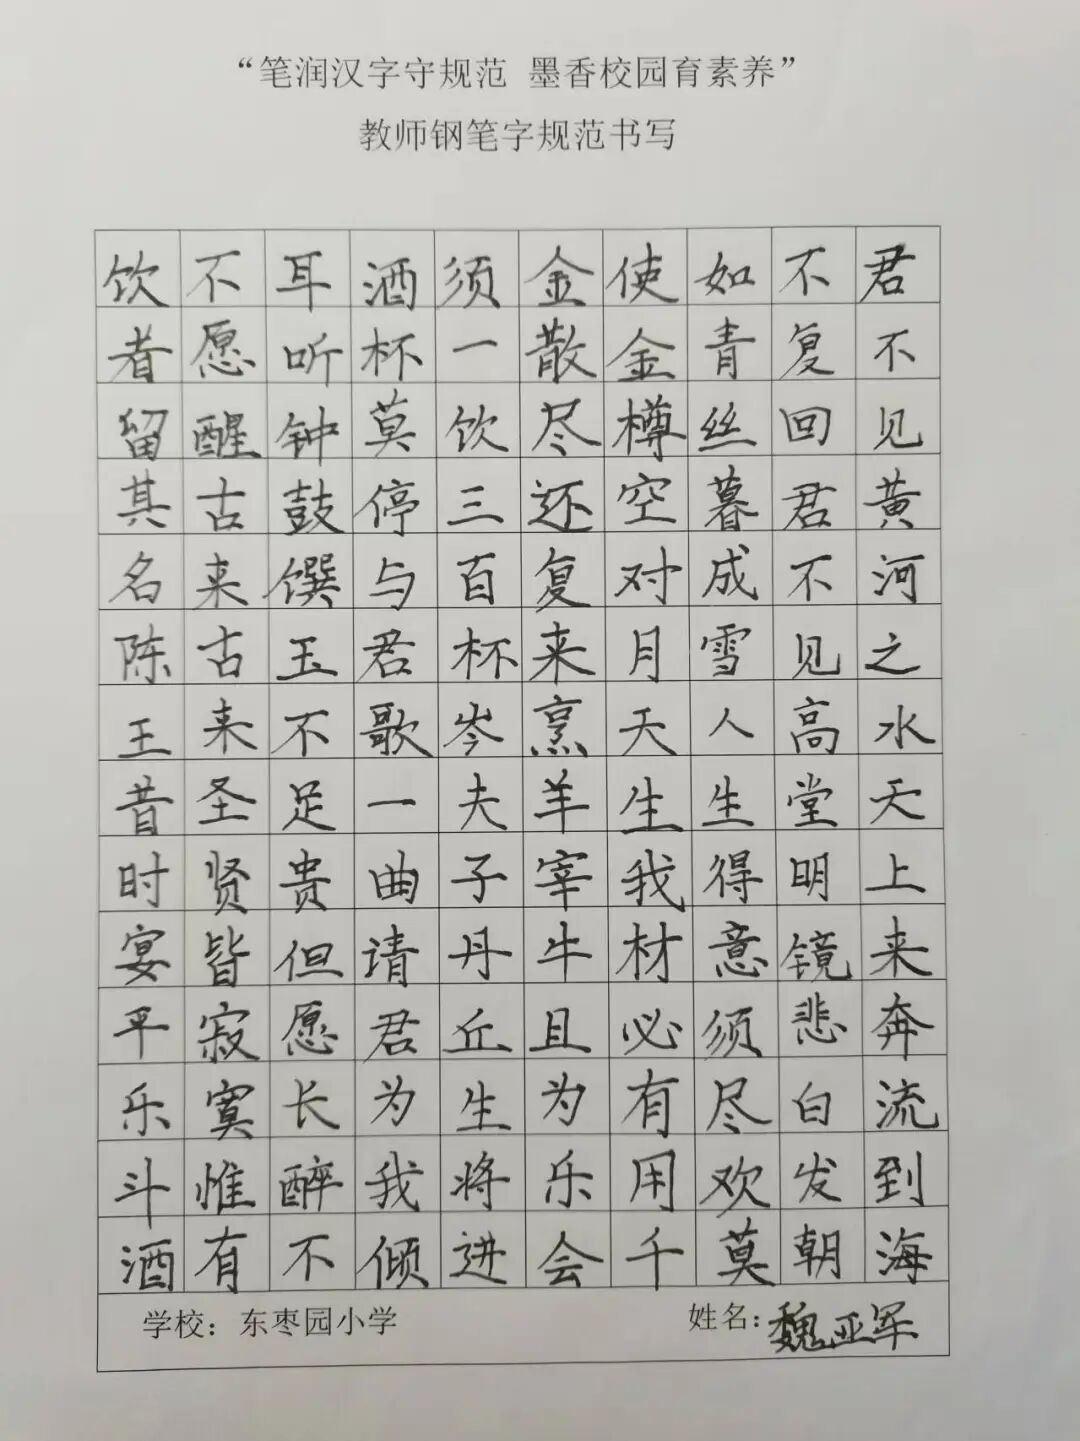 “笔润汉字守规范 墨香校园育素养”
教师钢笔字规范书写
君不见黄河之水天上来奔流到海
不复回君不见高堂明镜悲白发朝
如青丝暮成雪人生得意须尽欢莫
使金樽空对月天生我材必有用千
金散尽还复来烹羊宰牛且为乐会
须一饮三百杯岑夫子丹丘生将进
酒杯莫停与君歌一曲请君为我倾
耳听钟鼓馔玉不足贵但愿长醉不
不愿醒古来古来圣贤皆寂寞惟有
饮者留其名陈王昔时宴平乐斗酒
学校：东枣园小学 姓名：魏亚军